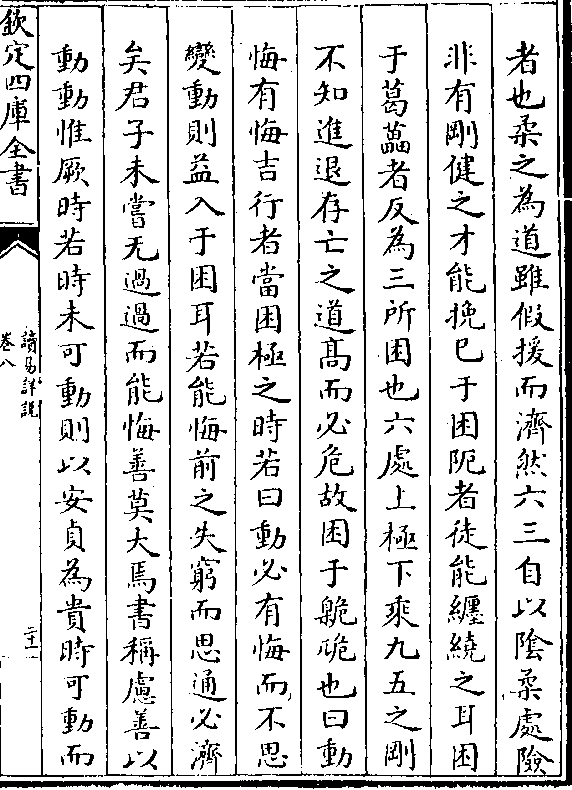 者也柔之為道雖假援而濟然六三自以陰柔處險
非有剛健之才能挽已于困阨者徒能纏繞之耳困
于葛藟者反為三所困也六處上極下乘九五之剛
不知進退存亡之道髙而必危故困于臲卼也曰動
悔有悔吉行者當困極之時若曰動必有悔而不思
變動則益入于困耳若能悔前之失窮而思通必濟
矣君子未嘗无過過而能悔善莫大焉書稱慮善以
動動惟厥時若時未可動則以安貞為貴時可動而
欽定四庫全書
讀易詳說
卷八
二十一